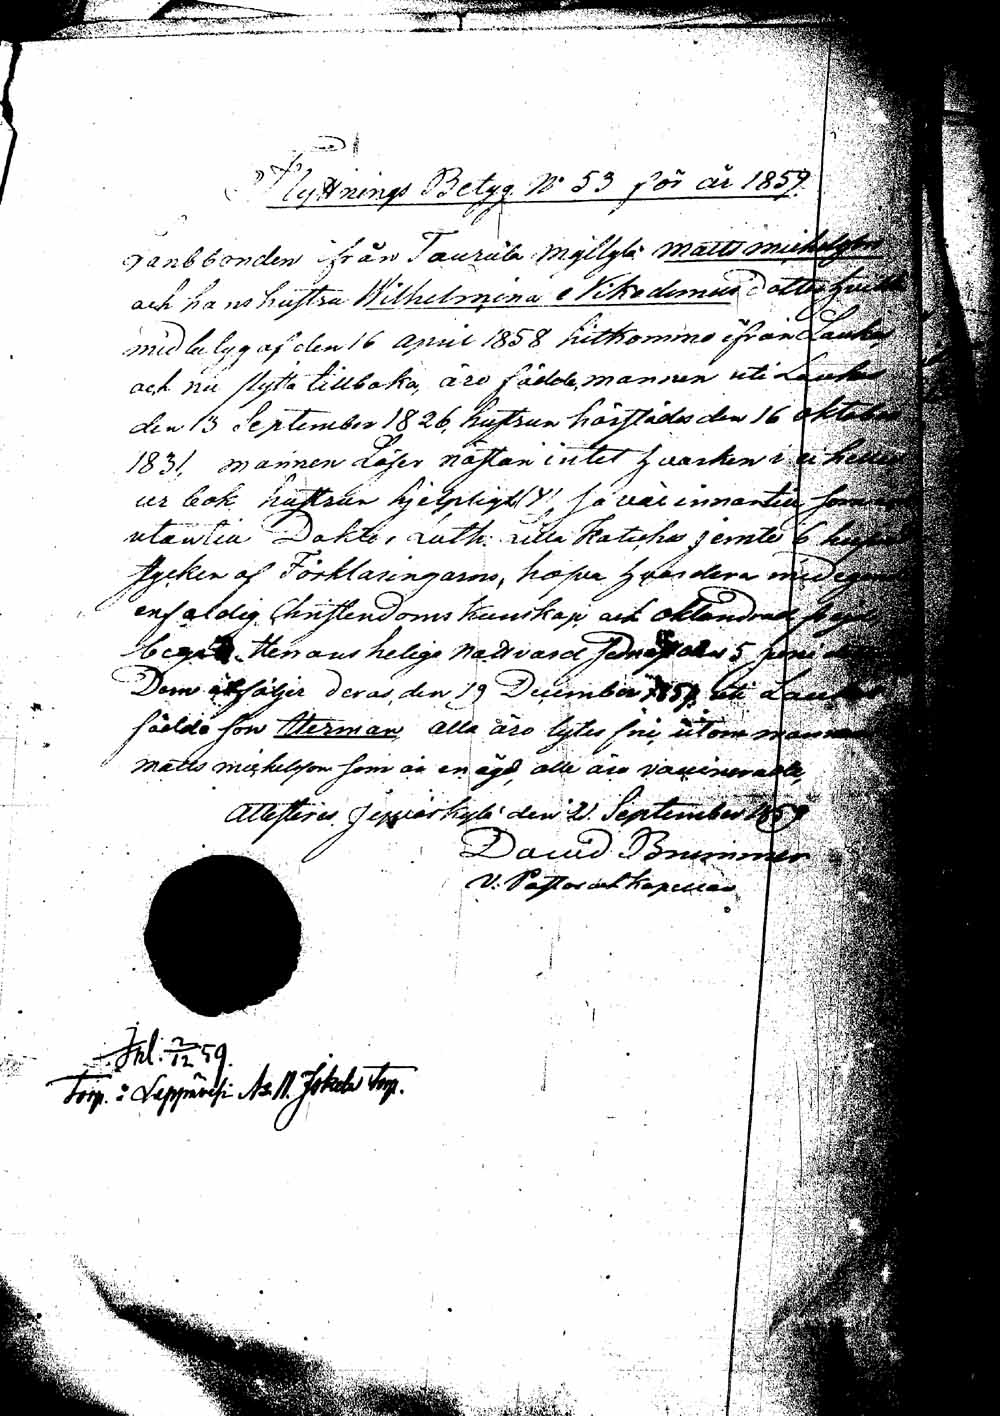 Flyttnings Betyg No 53 för år 1859.
ifrån Taurula Myllylä Matts Michelsson
och hans hustru Wilhelmina Nikodemus dotter
med betyg af den 16 April 1858 hitkomne ifrån Lauka
och nu flytta tillbaka, äro födde, mannen uti Lauka
den 13 September 1826, hustrun härstädes den 16 oktober
1831, mannen Läser nästan intet hvarken i ei heller
ur bok, hustrun hjelpligt innantill som
utantill Dokt. Luth. Lilla Katekes jemte 6 hufvud
stycken af Förklaringarne, hafva hvardera
enfaldig Christendoms kunskap, och oklandrad frejd,
begått Herrans heliga Nattvard 5 juni
Dem åtföljer deras den 19 December uti Lauka
födde son Herman, alla äro lytes fri, utom mannen
Matts Michelsson som är enögd, alla äro vaccinerade,
Attesteras Jyväskylä den 21. September 1859
David Brummer
V. Pastor och Kapellan
Inl. 2/12 59.
Torp. i Leppävesi No 11. Jokela Torp.